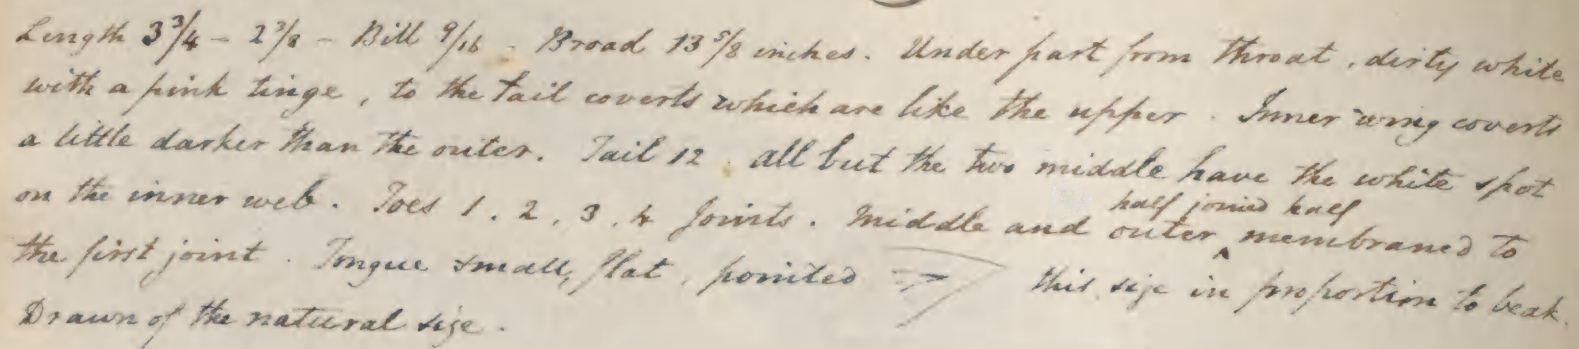 Length 3 3/4 - 2 3/8 - Bill 9/16 - Broad 13 5/8 inches. Under part from throat, dirty white
with a pink tinge, to the tail coverts which are like the upper. Inner wing coverts
a little darker than the outer. Tail 12. all but the two middle have the white spot
on the inner web. Toes 1. 2. 3. 4 Joints. Middle and outer ‸ half joined half membraned to
the first joint. Tongue small, flat, pointed this size in proportion to beak.
Drawn of the natural size.